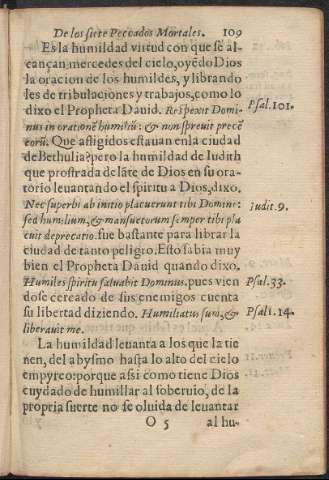 De los siete Peccados Mortales. 109
Es la humildad virtud con que se al-
cançan mercedes del cielo, oyẽdo Dios
la oracion de los humildes, y librando
les de tribulaciones y trabajos, como lo
dixo el Propheta Dauid. Respexit Domi- Psal. 101.
nus in orationẽ humiliũ: & non spreuit precẽ
eorũ. Que afligidos estauan en la ciudad
de Bethulia? pero la humildad de Iudith
que prostrada delãte de Dios en su ora-
torio leuantando el spiritu a Dios, dixo.
Nec superbi ab initio placuerunt tibi Domine: Iudit. 9.
sed humilium, & mansuetorum semper tibi pla
cuit deprecatio. fue bastante para librar la
ciudad de tanto peligro. Esto sabia muy
bien el Propheta Dauid quando dixo.
Humiles spiritu saluabit Dominus. pues vien Psal. 33.
dose cercado de sus enemigos cuenta
su libertad diziendo. Humiliatus sum, & Psal. 114.
liberauit me.
La humildad leuanta a los que la tie
nen, del abysmo hasta lo alto del cielo
empyreo: porque assi como tiene Dios
cuydado de humillar al soberuio, de la
propria suerte no se oluida de leuantar
O 5 al hu-